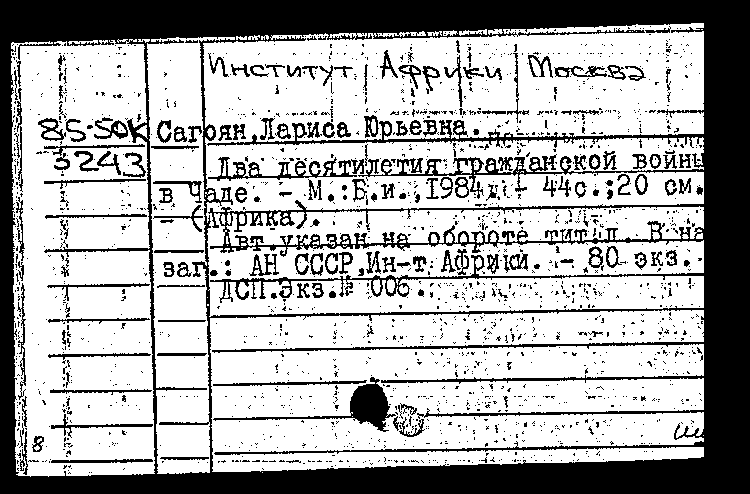 Институт Африки Москва
85-50К Сагоян,Лариса Юрьевна.
3243 Два десятилетия гражданской войны
в Чаде. - М.:Б.и.,1984. - 44с.;20 см.
- (Африка).
Авт.указан на обороте тит.л. В на
заг.: АН СССР,Ин-т Африки. - 80 экз.
ДСП.Экз.№ 006.
8